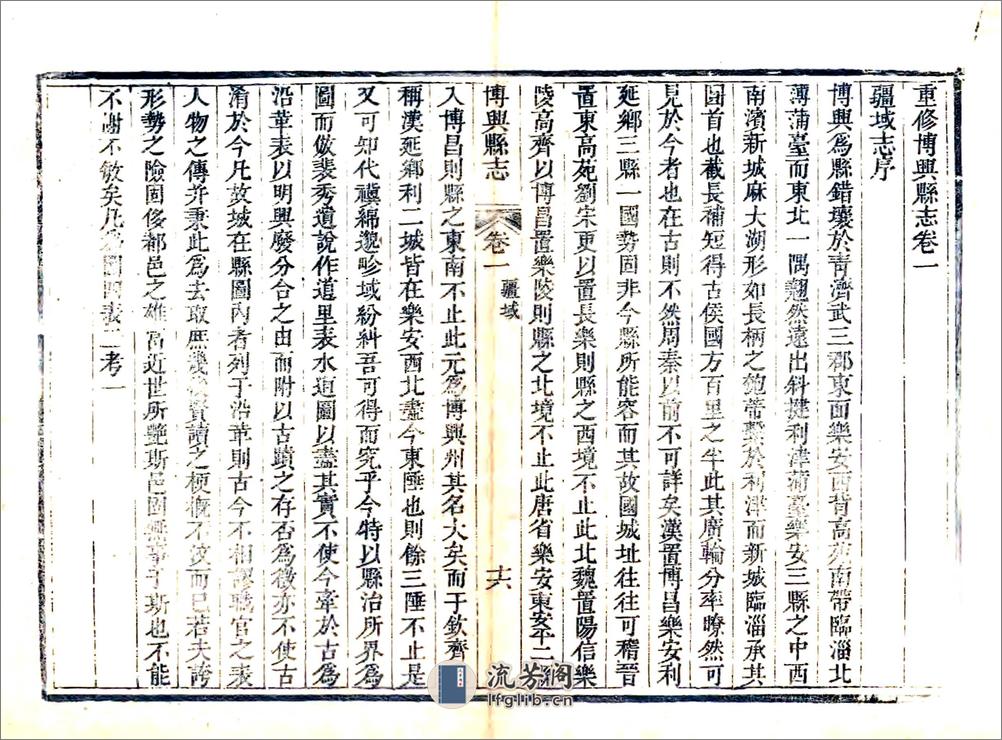 重修博興縣志卷一
疆域志序
博興爲縣錯壤於靑濟武三郡東面樂安西背高苑南帶臨淄北
薄蒲臺而東北一隅翹然遠出斜揵利津蒲臺樂安三縣之中西
南濱新城麻大湖形如長柄之匏蒂繫於利津而新城臨淄承其
困首也截長補短得古侯國方百里之半此其廣輪分率瞭然可
見於今者也在古則不然周秦以前不可詳矣漢置博昌樂安利
延鄉三縣一國勢固非今縣所能容而其故國城址往往可稽晉
置東高苑劉宋更以置長樂則縣之西境不止此北魏置陽信樂
陵高齊以博昌置樂陵則縣之北境不止此唐省樂安東安平二縣
博興縣志
卷一
疆域
十六
入博昌則縣之東南不止此元爲博興州其名大矣而于欽齊乘
稱漢延鄉利二城皆在樂安西北盡今東陲也則餘三陲不止是
又可知代禩綿邈畛域紛糾吾可得而究乎今特以縣治所界爲
圖而倣裴秀遺說作道里表水道圖以盡其實不使今牽於古爲
沿革表以明興廢分合之由而附以古蹟之存否爲徵亦不使古
淆於今凡故城在縣圖內者列于沿革則古今不相謬職官之表
人物之傳并秉此爲去取庶幾賓讀之梗槪不汶而已若夫誇
形勢之險固侈都邑之雄富近世所艷斯邑固無事于斯也不能
不謝不敏矣凡爲圖四表二考一
流芳閣
lfglib.cn